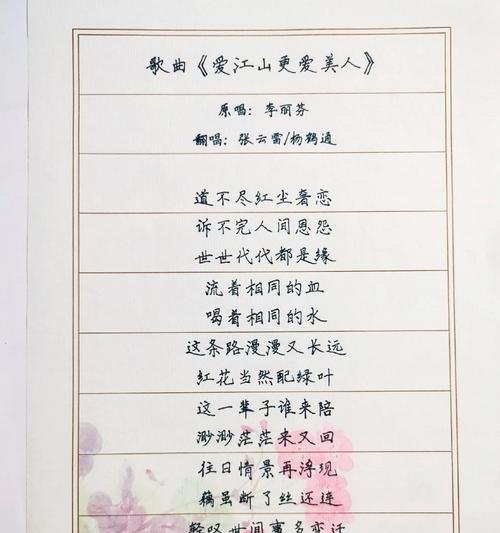 歌曲《爱江山更爱美人》
原唱：李丽芬
翻唱：张云雷/杨鹤通
道不尽红尘奢恋
诉不完人间恩怨
世世代代都是缘
流着相同的血
喝着相同的水
这条路漫漫又长远
红花当然配绿叶
这一辈子谁来陪
渺渺茫茫来又回
往日情景再浮现
藕虽断了丝还连
轻叹世间事多变迁